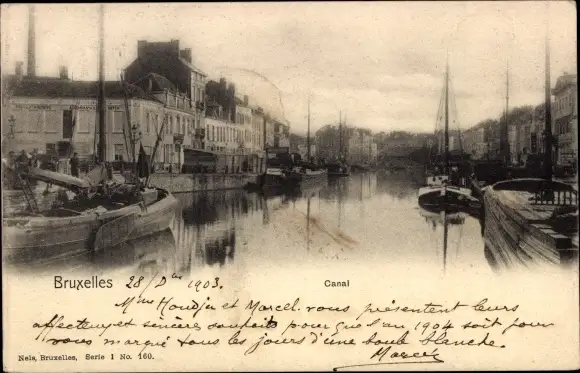 Bruxelles 28/Dbre 1903. Canal
Mme Houdja et Marcel vous présentent leurs
affectueux et sincère souhaits pour que l'an 1904 soit pour
vous marqué tous les jours d'une boule blanche.
Marcel
Nels, Bruxelles, Serie 1 No. 160.